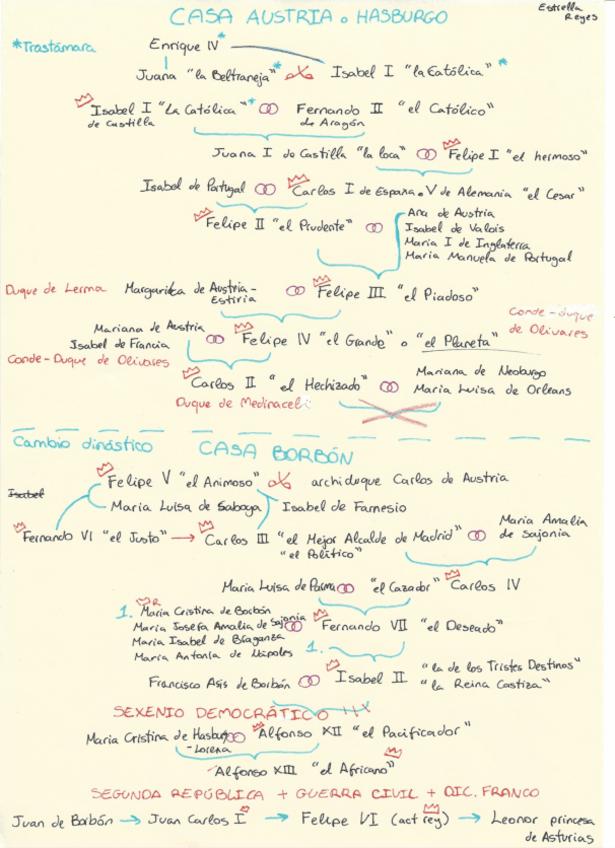 CASA AUSTRIA o HASBURGO
Estrella
Reyes
*Trastámara
Enrique IV*
Juana "la Beltraneja"* Isabel I "la Católica"*
Isabel I "La Católica"* Fernando II "el Católico"
de Castilla de Aragón
Juana I de Castilla "la loca" Felipe I "el hermoso"
Isabel de Portugal Carlos I de España o V de Alemania "el Cesar"
Felipe II "el Prudente"
Ana de Austria
Isabel de Valois
Maria I de Inglaterra
Maria Manuela de Portugal
Duque de Lerma
Margarita de Austria-
Estiria
Felipe III "el Piadoso"
Conde-duque
de Olivares
Mariana de Austria
Isabel de Francia
Felipe IV "el Grande" o "el Planeta"
Conde-Duque de Olivares
Carlos II "el Hechizado"
Mariana de Neoburgo
Maria Luisa de Orleans
Duque de Medinaceli
Cambio dinástico CASA BORBÓN
Felipe V "el Animoso" archiduque Carlos de Austria
Isabel
Maria Luisa de Saboya Isabel de Farnesio
Fernando VI "el Justo" → Carlos III "el Mejor Alcalde de Madrid"
"el Político"
Maria Amalia
de Sajonia
Maria Luisa de Parma "el Cazador" Carlos IV
1. Maria Cristina de Borbón
Maria Josefa Amalia de Sajonia
Maria Isabel de Braganza
Maria Antonia de Nápoles
Fernando VII "el Deseado"
1.
Francisco Asis de Borbón Isabel II
"la de los Tristes Destinos"
"la Reina Castiza"
SEXENIO DEMOCRÁTICO
Maria Cristina de Hasburgo
-Lorena
Alfonso XII "el Pacificador"
Alfonso XIII "el Africano"
SEGUNDA REPÚBLICA + GUERRA CIVIL + DIC. FRANCO
Juan de Borbón → Juan Carlos I → Felipe VI (act rey) → Leonor princesa
de Asturias